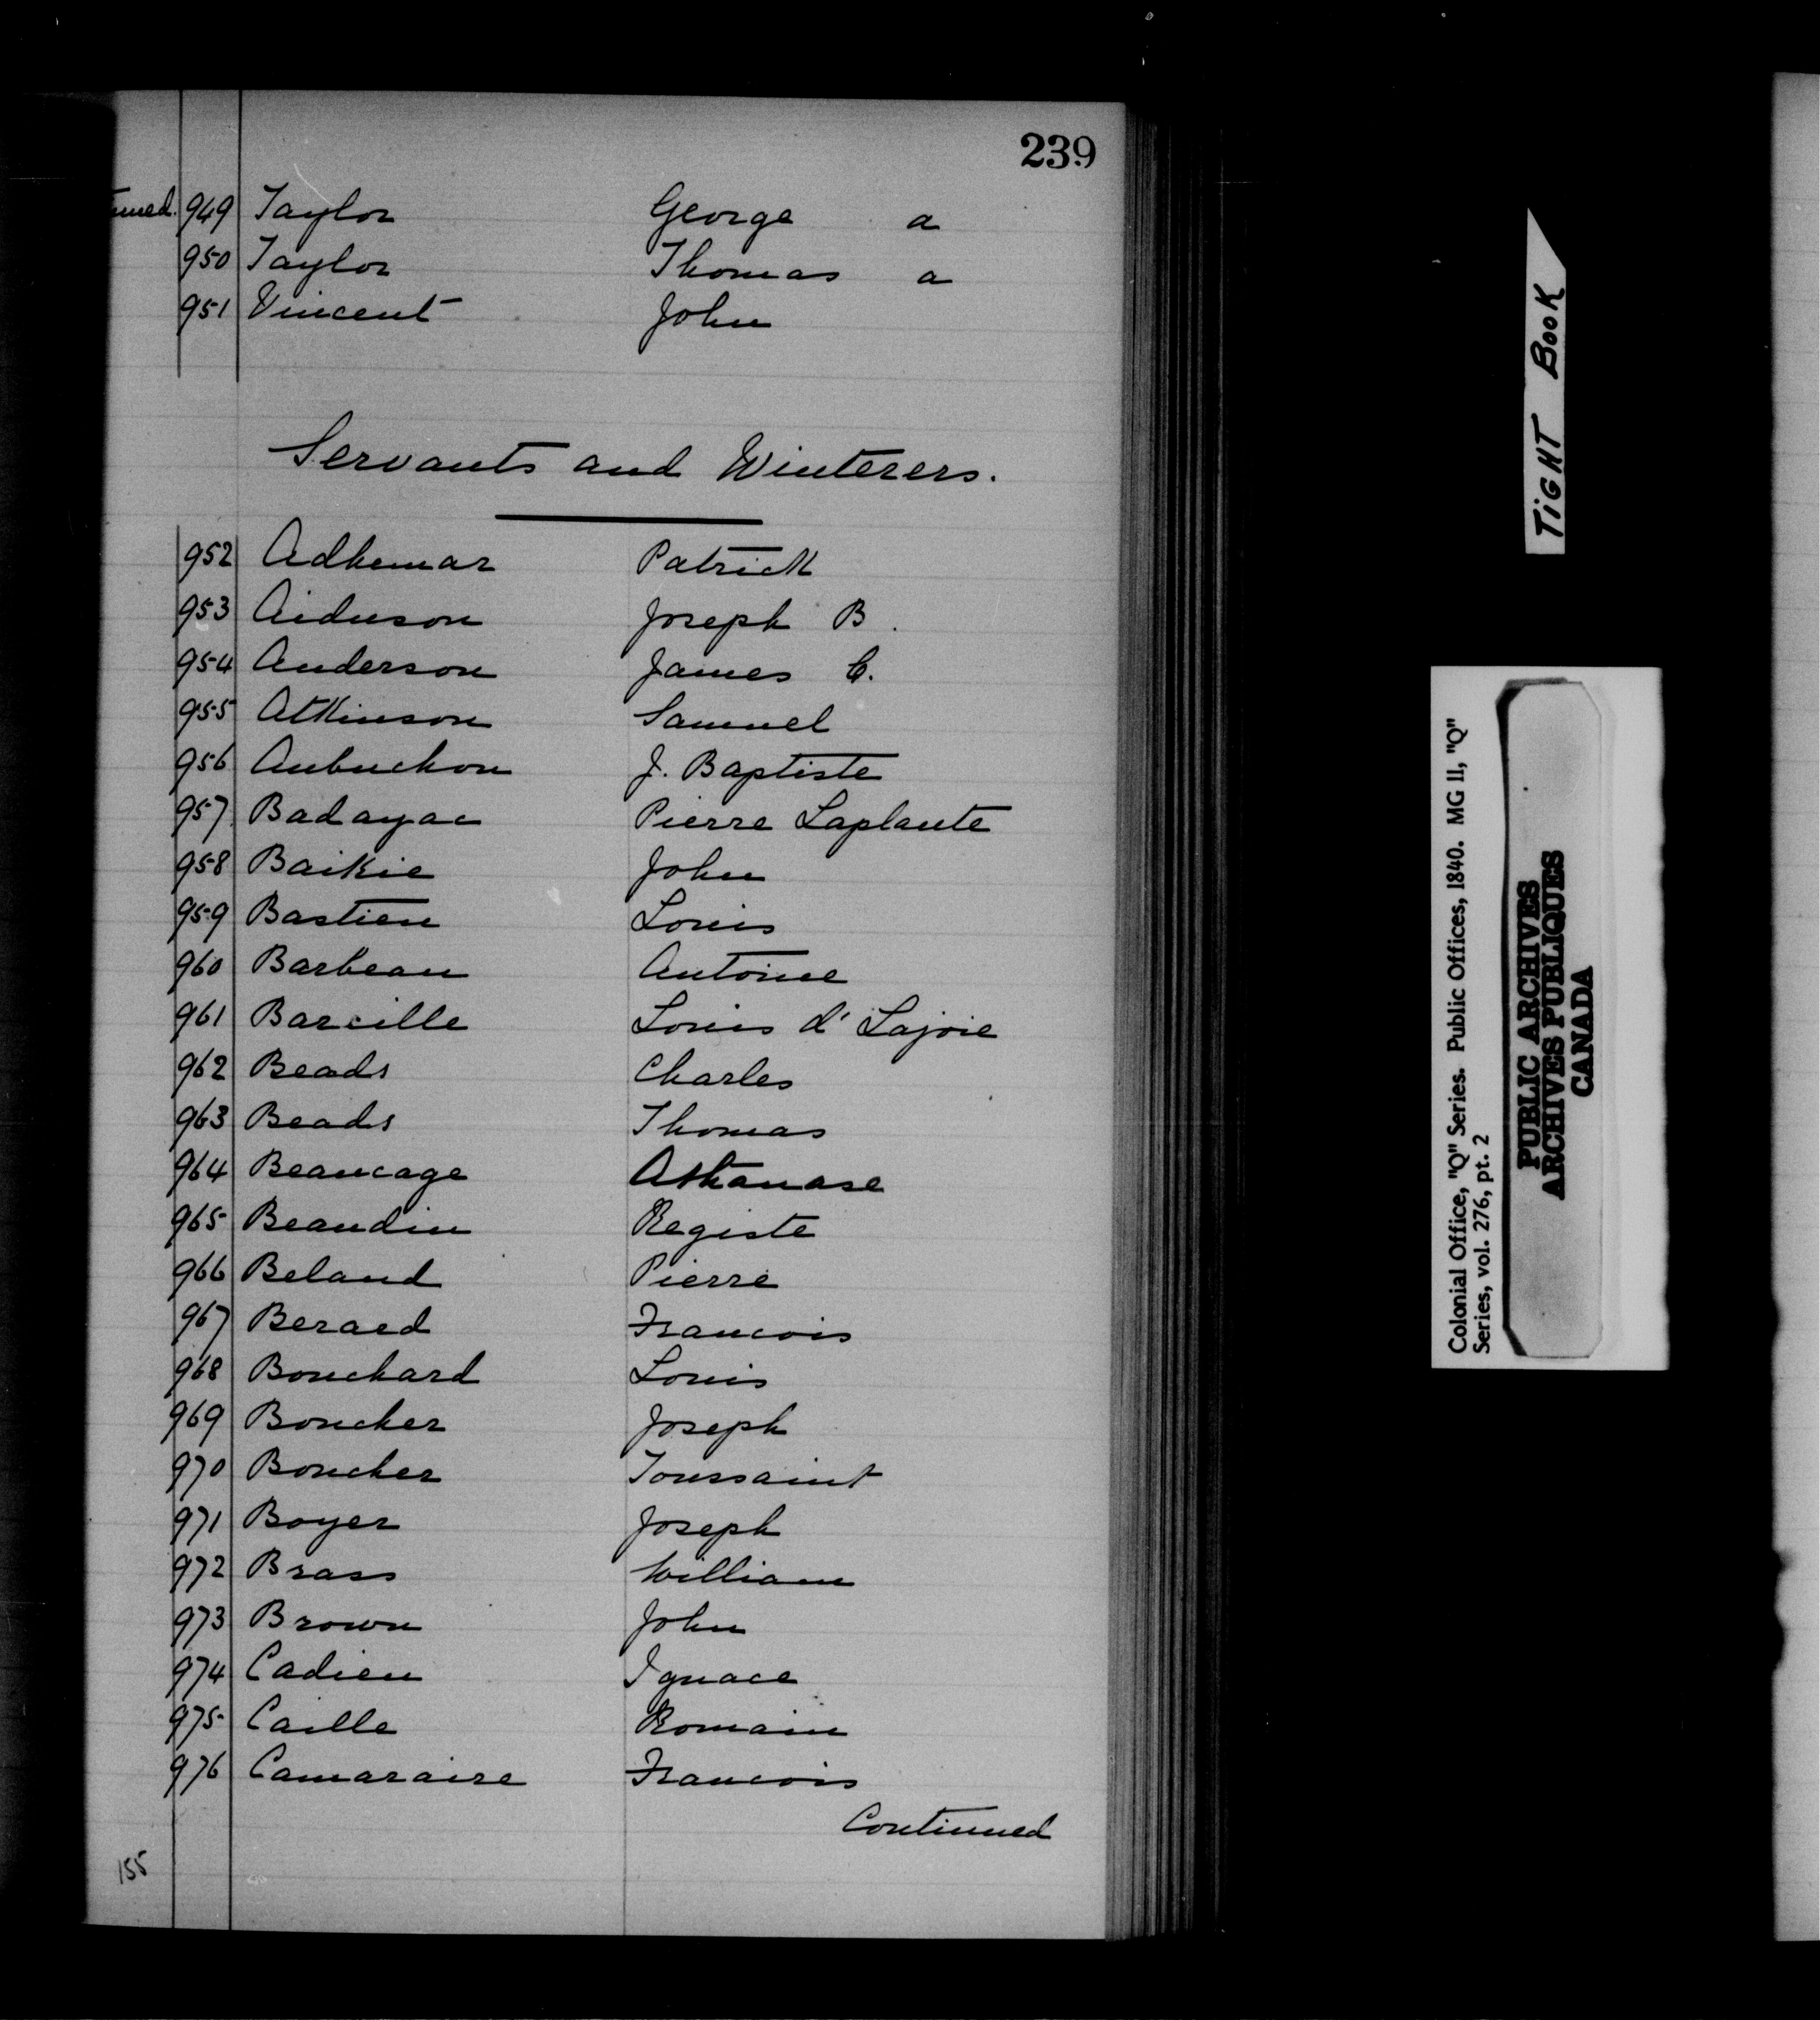 239
949 Taylor George a
950 Taylor Thomas a
951 Vincent John
Servants and Winterers.
952 Adhemar Patrick
953 Aidnson Joseph B.
954 Anderson James C.
955 Atkinson Samuel
956 Aubuchon J. Baptiste
957 Badayac Pierre Laplante
958 Baikie John
959 Bastien Louis
960 Barbeau Antoine
961 Barcille Louis d' Lajoie
962 Beads Charles
963 Beads Thomas
964 Beaucage Athanase
965 Beaudin Registe
966 Beland Pierre
967 Berard Francois
968 Bouchard Louis
969 Boucher Joseph
970 Boucher Toussaint
971 Boyer Joseph
972 Brass William
973 Brown John
974 Cadieu Ignace
975 Caille Romain
976 Camaraire Francois
Continued
155
TIGHT BOOK
Colonial Office, "Q" Series. Public Offices, 1840. MG 11, "Q"
Series, vol. 276, pt. 2
PUBLIC ARCHIVES
ARCHIVES PUBLIQUES
CANADA